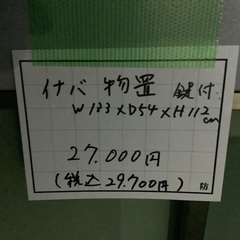 イナバ 物置 錠付.
W133×D54×H112cm
27.000円
(税込29.700円)
防